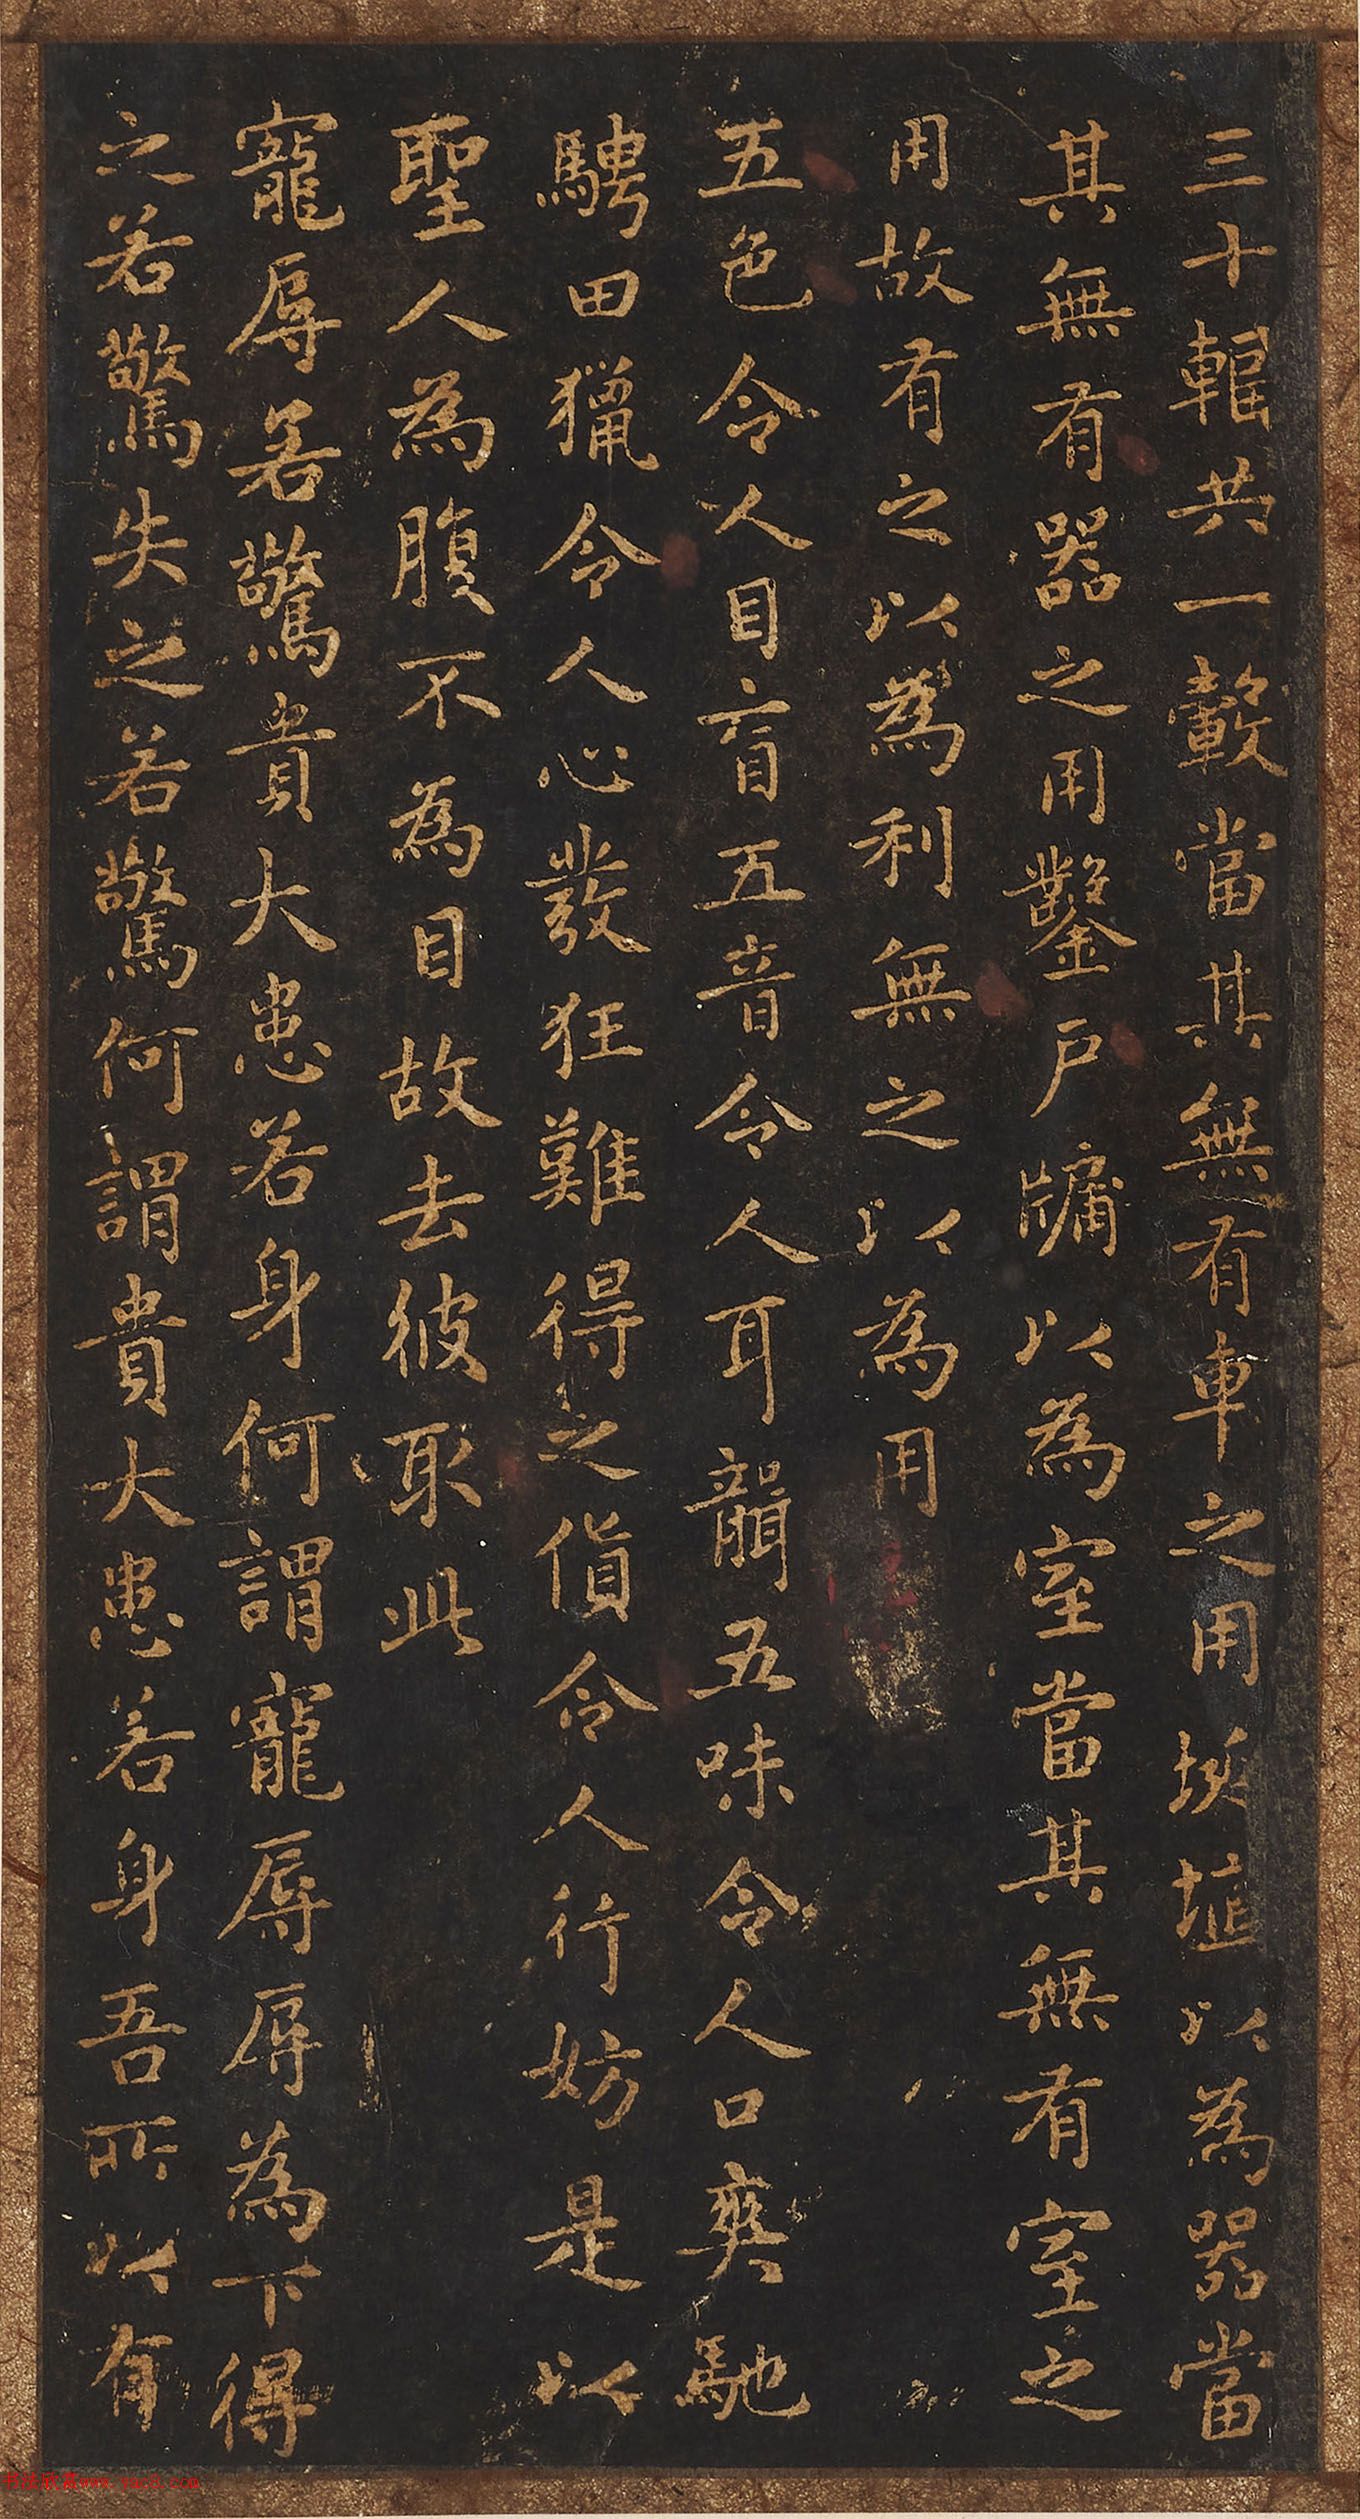 三十輻共一轂當其無有車之用埏埴以為器當
其無有器之用鑿戶牖以為室當其無有室之
用故有之以為利無之以為用
五色令人目盲五音令人耳聾五味令人口爽馳
騁田獵令人心發狂難得之貨令人行妨是以
聖人為腹不為目故去彼取此
寵辱若驚貴大患若身何謂寵辱辱為下得
之若驚失之若驚何謂貴大患若身吾所以有
书法欣赏www.yac8.com